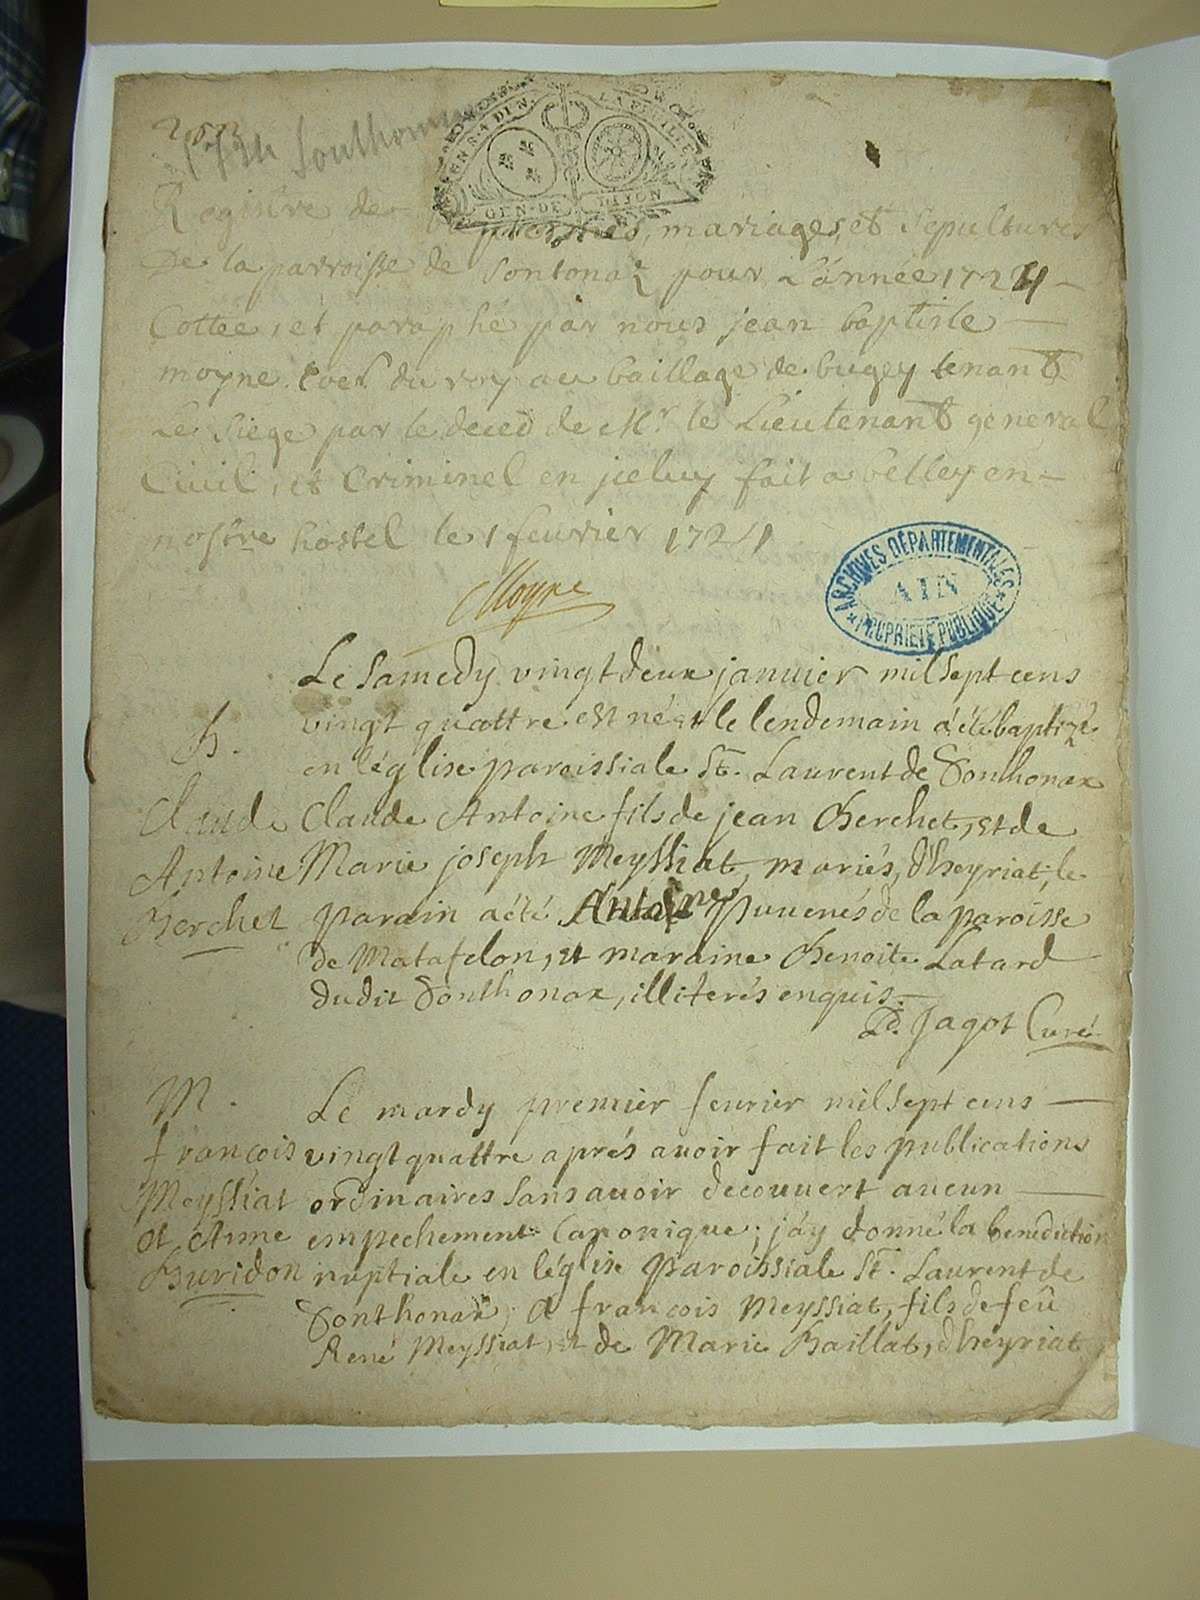 1724 Sonthonnax
GEN. DE DIJON
Registre de baptesmes, mariages, et Sepultures
De la parroisse de Sontonaz pour L'année 1724
Cottée, et paraphé par nous jean baptiste
moyne. Coer. du roy au baillage de bugey tenant
Le Siege par le deced de Mr. le Lieutenant general
Civil, et Criminel en jceluy fait a belley en
nostre hostel le 1 feurier 1724
Moyne
ARCHIVES DÉPARTEMENTALES
AIN
PROPRIÉTÉ PUBLIQUE
Le Samedy vingt deux januier mil sept cens
vingt quattre est né et le lendemain a été baptizé
en l'église paroissiale St. Laurent de Sonthonax
Claude Antoine fils de jean Berchet, et de
Marie joseph Meyssiat, mariés, d'heyriat, le
parain a été Antoine puvenés de la paroisse
de Matafelon, et maraine Benoite Latard
dudit Sonthonax, illiterés enquis.
D. Jagot Curé
B.
Claude
Antoine
Berchet
Le mardy premier feurier mil sept cens
vingt quattre aprés auoir fait les publications
ordinaires sans auoir decouuert aucun
empechement Canonique; j'ay donné la benediction
nuptiale en l'église paroissiale St. Laurent de
Sonthonax, a françois Meyssiat, fils de feû
René Meyssiat, et de Marie Baillat, d'heyriat
M.
françois
Meyssiat
et Anne
Buridon